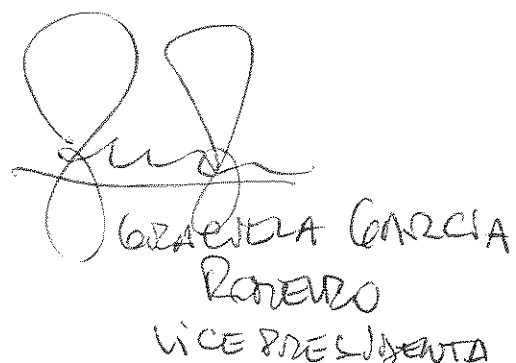 GRACIELA GARCIA
ROMERO
VICEPRESIDENTA